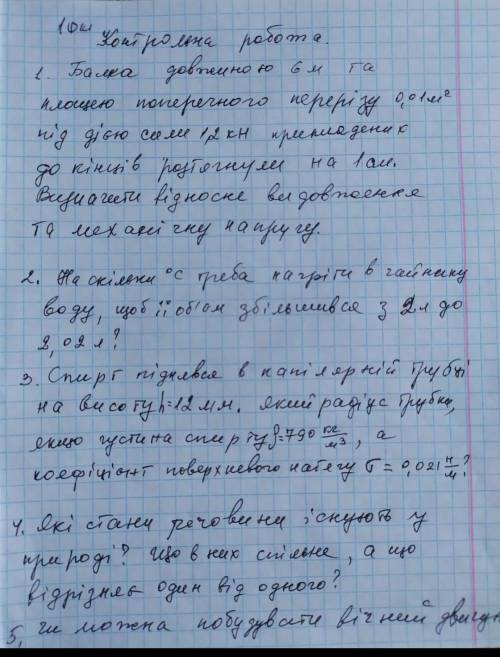 10 кл
Контрольна робота.
1. Балка довжиною 6 м та
площею поперечного перерізу 0,01 м²
під дією сили 12 кН прикладених
до кінців розтягнули на 1 см.
Визначити відносне видовження
та механічну напругу.
2. На скільки °С треба нагріти в чайнику
воду, щоб її об'єм збільшився з 2 л до
2,02 л?
3. Спирт піднявся в капілярній трубці
на висоту h=12 мм. який радіус трубки,
якщо густина спирту ρ=790 кг/м³, а
коефіцієнт поверхневого натягу σ = 0,021 н/м?
4. Які стани речовини існують у
природі? Що в них спільне, а що
відрізняє один від одного?
5, чи можна побудувати вічний двигун